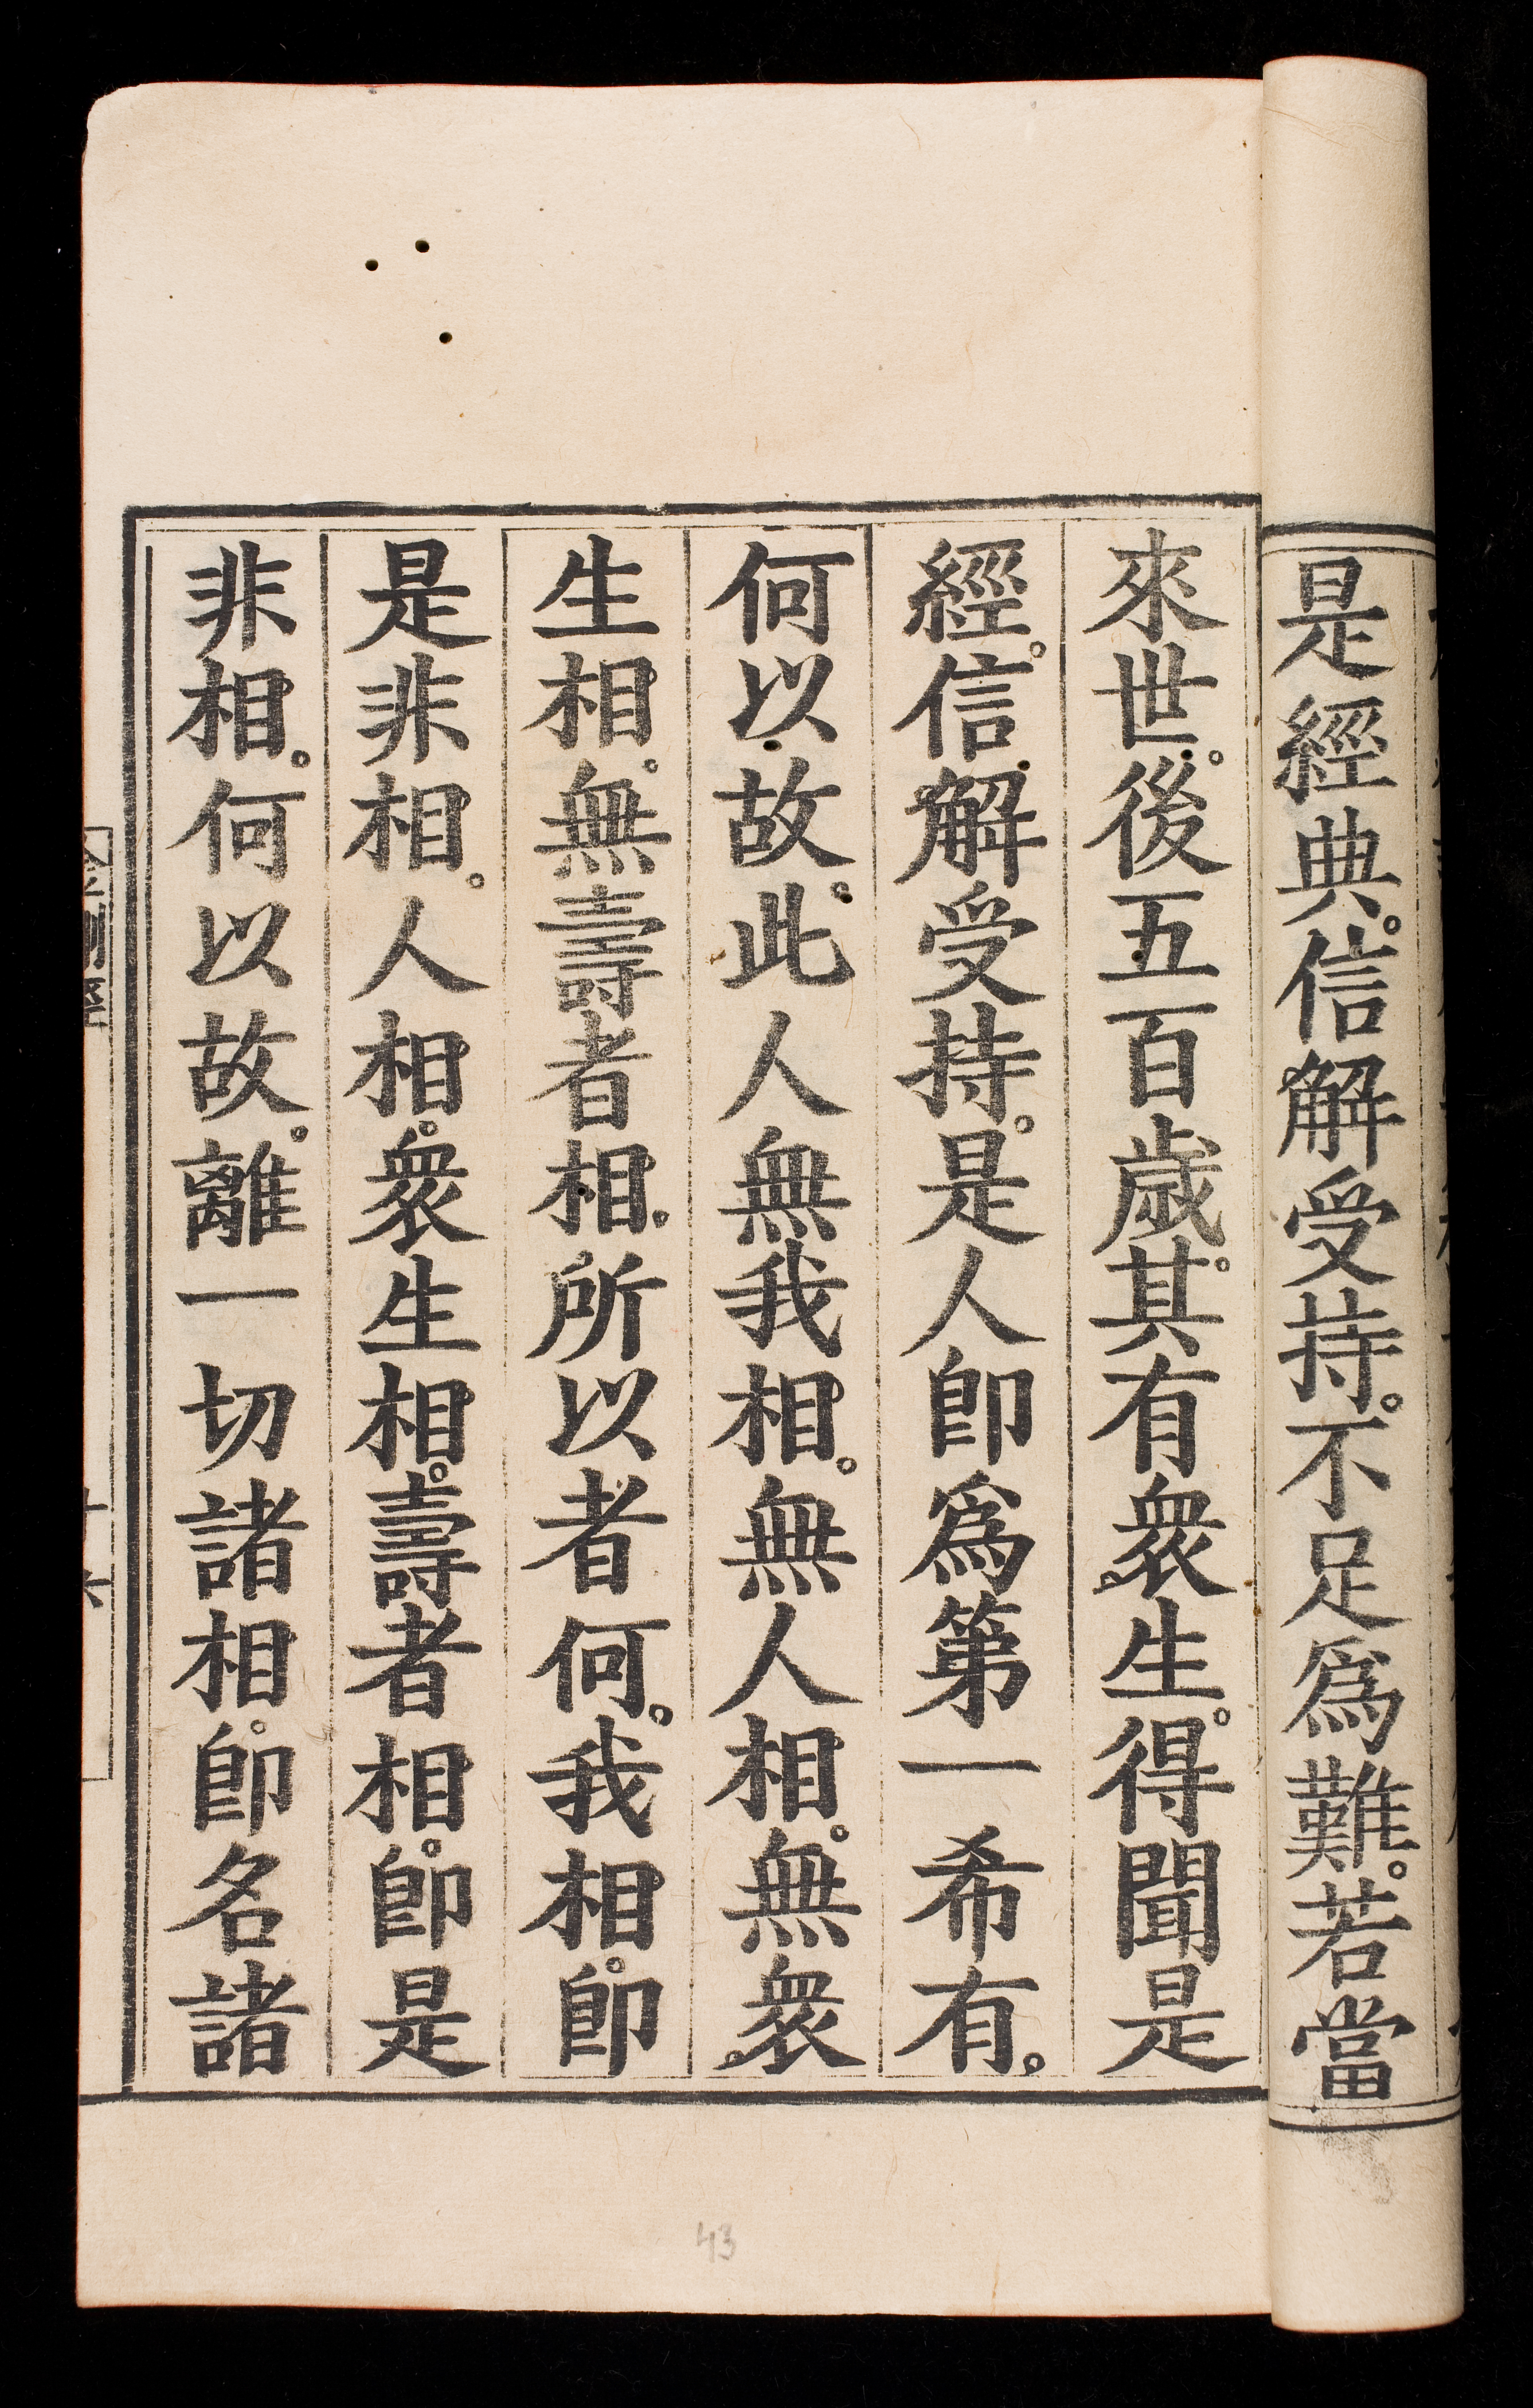 是經典。信解受持。不足爲難。若當
來世。後五百歲。其有衆生。得聞是
經。信解受持。是人卽爲第一希有。
何以故。此人無我相。無人相。無衆
生相。無壽者相。所以者何。我相。卽
是非相。人相。衆生相。壽者相。卽是
非相。何以故。離一切諸相。卽名諸
43